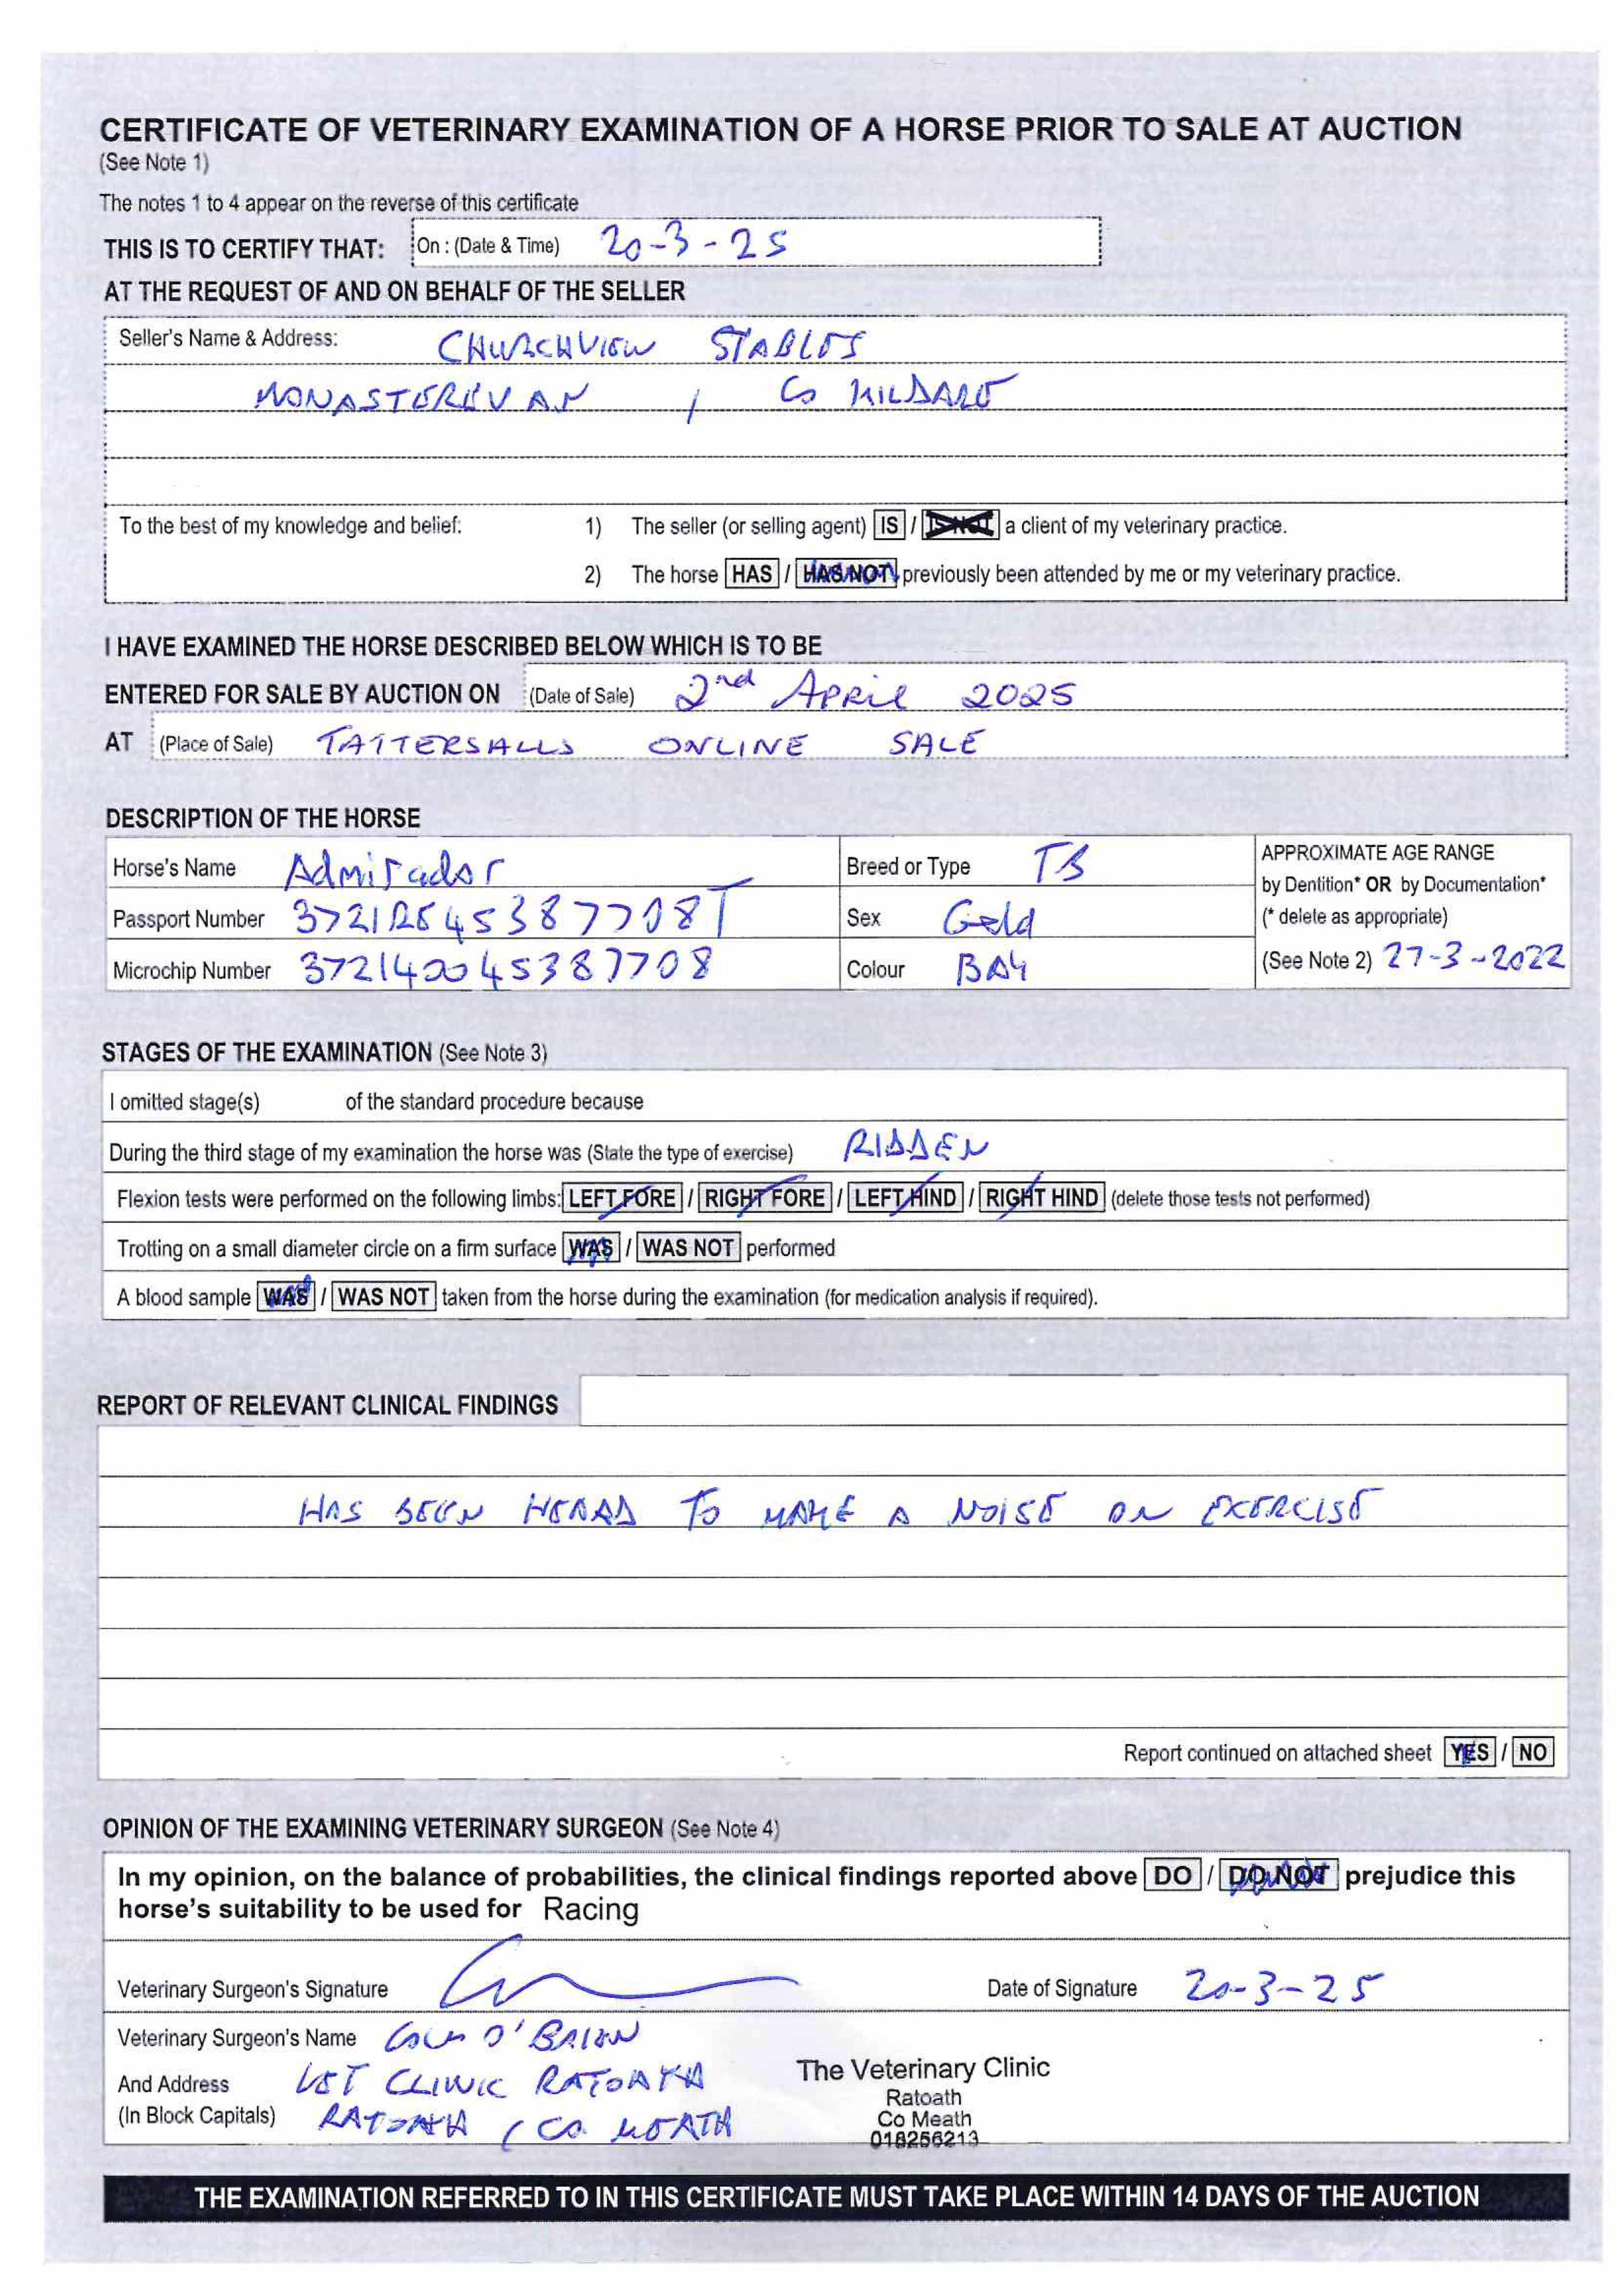 CERTIFICATE OF VETERINARY EXAMINATION OF A HORSE PRIOR TO SALE AT AUCTION
(See Note 1)
The notes 1 to 4 appear on the reverse of this certificate
THIS IS TO CERTIFY THAT: On : (Date & Time) 20-3-25
AT THE REQUEST OF AND ON BEHALF OF THE SELLER
Seller's Name & Address: CHURCHVIEW STABLES
MONASTEREVAN, Co KILDARE
To the best of my knowledge and belief: 1) The seller (or selling agent) IS / IS NOT a client of my veterinary practice.
2) The horse HAS / HAS NOT previously been attended by me or my veterinary practice.
I HAVE EXAMINED THE HORSE DESCRIBED BELOW WHICH IS TO BE
ENTERED FOR SALE BY AUCTION ON (Date of Sale) 2nd APRiL 2025
AT (Place of Sale) TATTERSALLS ONLINE SALE
DESCRIPTION OF THE HORSE
Horse's Name Admirador Breed or Type TB APPROXIMATE AGE RANGE
by Dentition* OR by Documentation*
Passport Number Sex Geld (* delete as appropriate)
Microchip Number 372140045387708 Colour BAY (See Note 2) 27-3-2022
STAGES OF THE EXAMINATION (See Note 3)
I omitted stage(s) of the standard procedure because
During the third stage of my examination the horse was (State the type of exercise) RIDDEN
Flexion tests were performed on the following limbs: LEFT FORE / RIGHT FORE / LEFT HIND / RIGHT HIND (delete those tests not performed)
Trotting on a small diameter circle on a firm surface WAS / WAS NOT performed
A blood sample WAS / WAS NOT taken from the horse during the examination (for medication analysis if required).
REPORT OF RELEVANT CLINICAL FINDINGS
HAS BEEN HEARD TO MAKE A NOISE ON EXERCISE
Report continued on attached sheet YES / NO
OPINION OF THE EXAMINING VETERINARY SURGEON (See Note 4)
In my opinion, on the balance of probabilities, the clinical findings reported above DO / DO NOT prejudice this
horse's suitability to be used for Racing
Veterinary Surgeon's Signature Date of Signature 20-3-25
Veterinary Surgeon's Name O'BRIEN
And Address VET CLINIC RATOATH
(In Block Capitals) RATOATH, CO. MEATH
The Veterinary Clinic
Ratoath
Co Meath
018256213
THE EXAMINATION REFERRED TO IN THIS CERTIFICATE MUST TAKE PLACE WITHIN 14 DAYS OF THE AUCTION